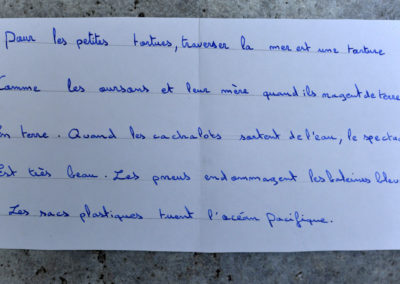 Pour les petites tortues, traverser la mer est une torture
Comme les oursons et leur mère quand ils nagent de terre
En terre. Quand les cachalots sortent de l'eau, le specta
Est très beau. Les pneus endommagent les baleines bleu
Les sacs plastiques tuent l'océan pacifique.